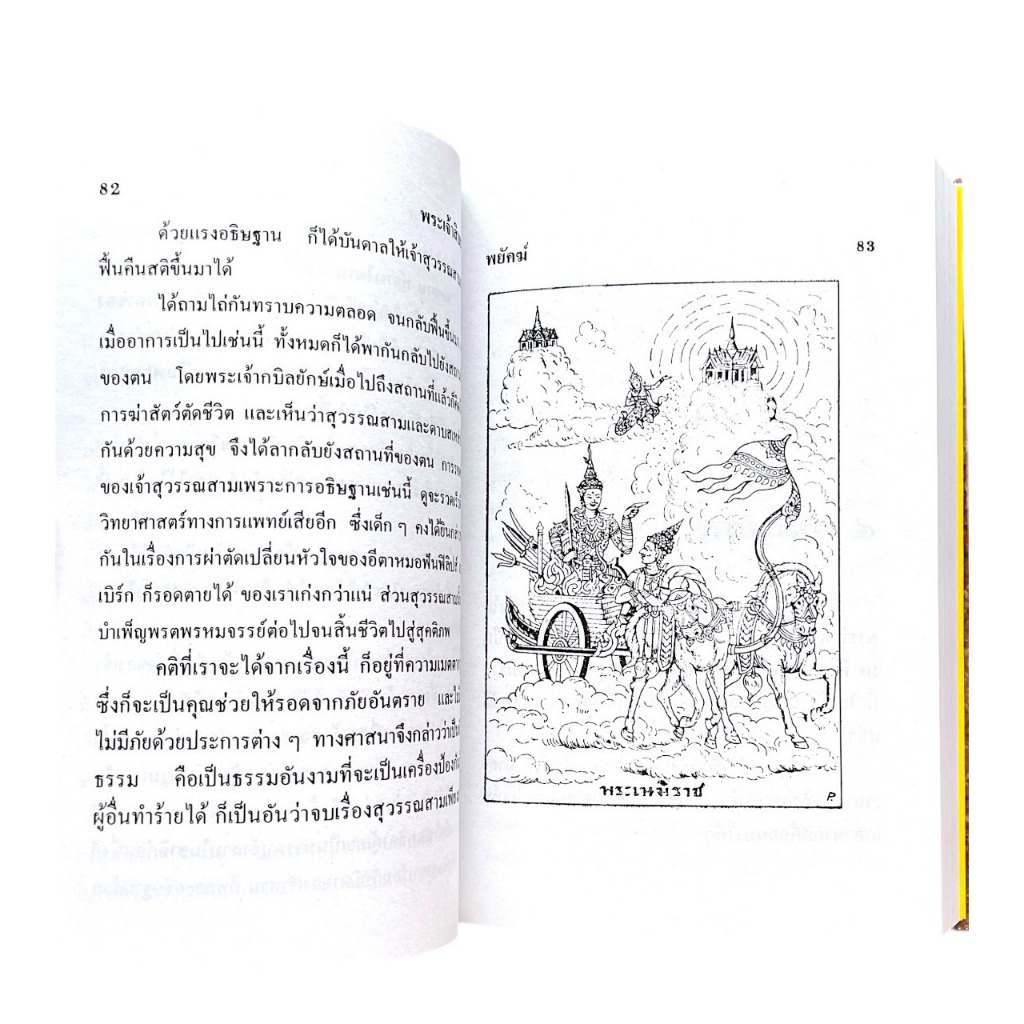 82
พระเจ้าสิบ
ด้วยแรงอธิษฐาน ก็ได้บันดาลให้เจ้าสุวรรณสาม
ฟื้นคืนสติขึ้นมาได้
ได้ถามไถ่กันทราบความตลอด จนกลับฟื้นขึ้นมา
เมื่ออาการเป็นไปเช่นนี้ ทั้งหมดก็ได้พากันกลับไปยังสถาน
ของตน โดยพระเจ้ากบิลยักษ์เมื่อไปถึงสถานที่แล้วก็
การฆ่าสัตว์ตัดชีวิต และเห็นว่าสุวรรณสามและดาบส
กันด้วยความสุข จึงได้ลากลับยังสถานที่ของตน การ
ของเจ้าสุวรรณสามเพราะการอธิษฐานเช่นนี้ ดูจะรวดเร็ว
วิทยาศาสตร์ทางการแพทย์เสียอีก ซึ่งเด็ก ๆ คงได้ยิน
กันในเรื่องการผ่าตัดเปลี่ยนหัวใจของอีตาหมอฟันฟิลิป
เบิร์ก ก็รอดตายได้ ของเราเก่งกว่าแน่ ส่วนสุวรรณสาม
บำเพ็ญพรตพรหมจรรย์ต่อไปจนสิ้นชีวิตไปสู่สุคติภพ
คติที่เราจะได้จากเรื่องนี้ ก็อยู่ที่ความเมตตา
ซึ่งก็จะเป็นคุณช่วยให้รอดจากภัยอันตราย และ
ไม่มีภัยด้วยประการต่าง ๆ ทางศาสนาจึงกล่าวว่าเป็น
ธรรม คือเป็นธรรมอันงามที่จะเป็นเครื่องป้องกัน
ผู้อื่นทำร้ายได้ ก็เป็นอันว่าจบเรื่องสุวรรณสามเพียง
พยัคฆ์ 83
พระเหมิราช
P.